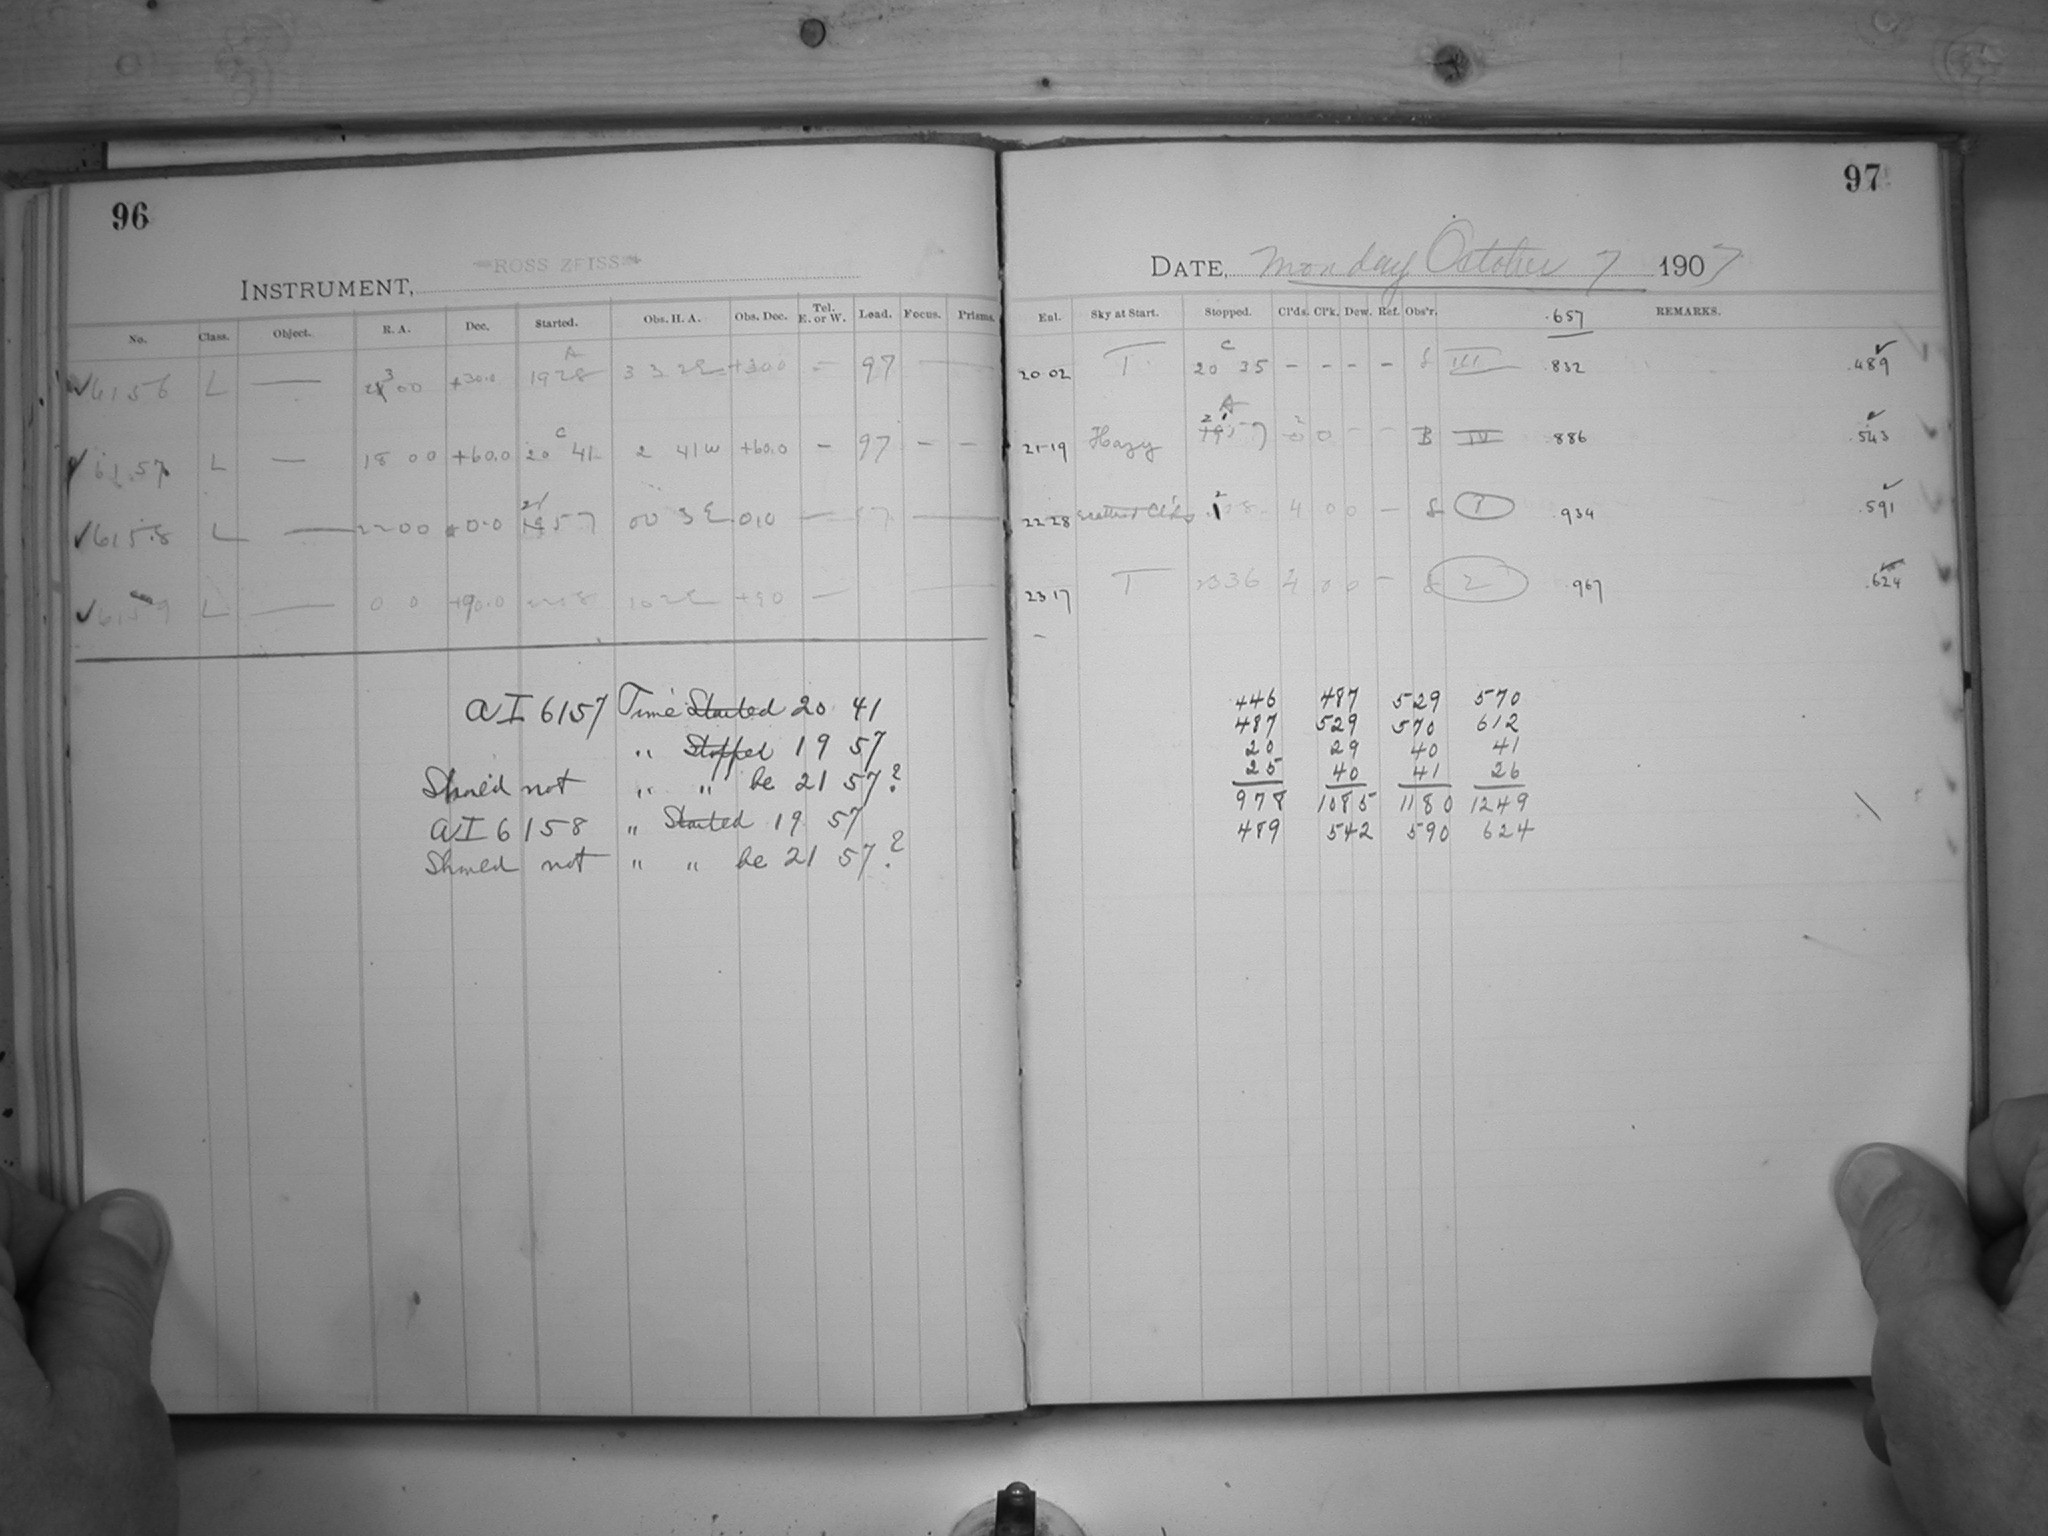 96
ROSS ZEISS
INSTRUMENT,
No. Class. Object. R. A. Dec. Started. Obs. H. A. Obs. Dec. Tel. E. or W. Lead. Focus. Prisms.
A
✓6156 L — 3 00 +30.0 1928 3 32E +30.0 — 97 —
C
✓6157 L — 18 00 +60.0 20 41 2 41W +60.0 — 97 — —
21
✓6158 L — 22 00 0.0 19 57 00 3E 0.0 — 97 —
✓6159 L — 0 0 +90.0 +90 —
AI 6157 Time Started 20 41
" Stopped 19 57
Should not " " be 21 57?
AI 6158 " Started 19 57
Should not " " be 21 57?
97
DATE, Monday October 7 1907
Enl. Sky at Start. Stopped. Cl'ds. Cl'k. Dew. Ref. Obs'r. .657 REMARKS.
C
20 02 T 20 35 - - - - III .832 .489
A
21
21-19 Hazy 19 57 0 - - B IV .886 .543
22 28 4 0 0 - 1 .934 .591
23 17 T 2336 4 0 0 - 2 .967 .624
446 487 529 570
487 529 570 612
20 29 40 41
25 40 41 26
978 1085 1180 1249
489 542 590 624